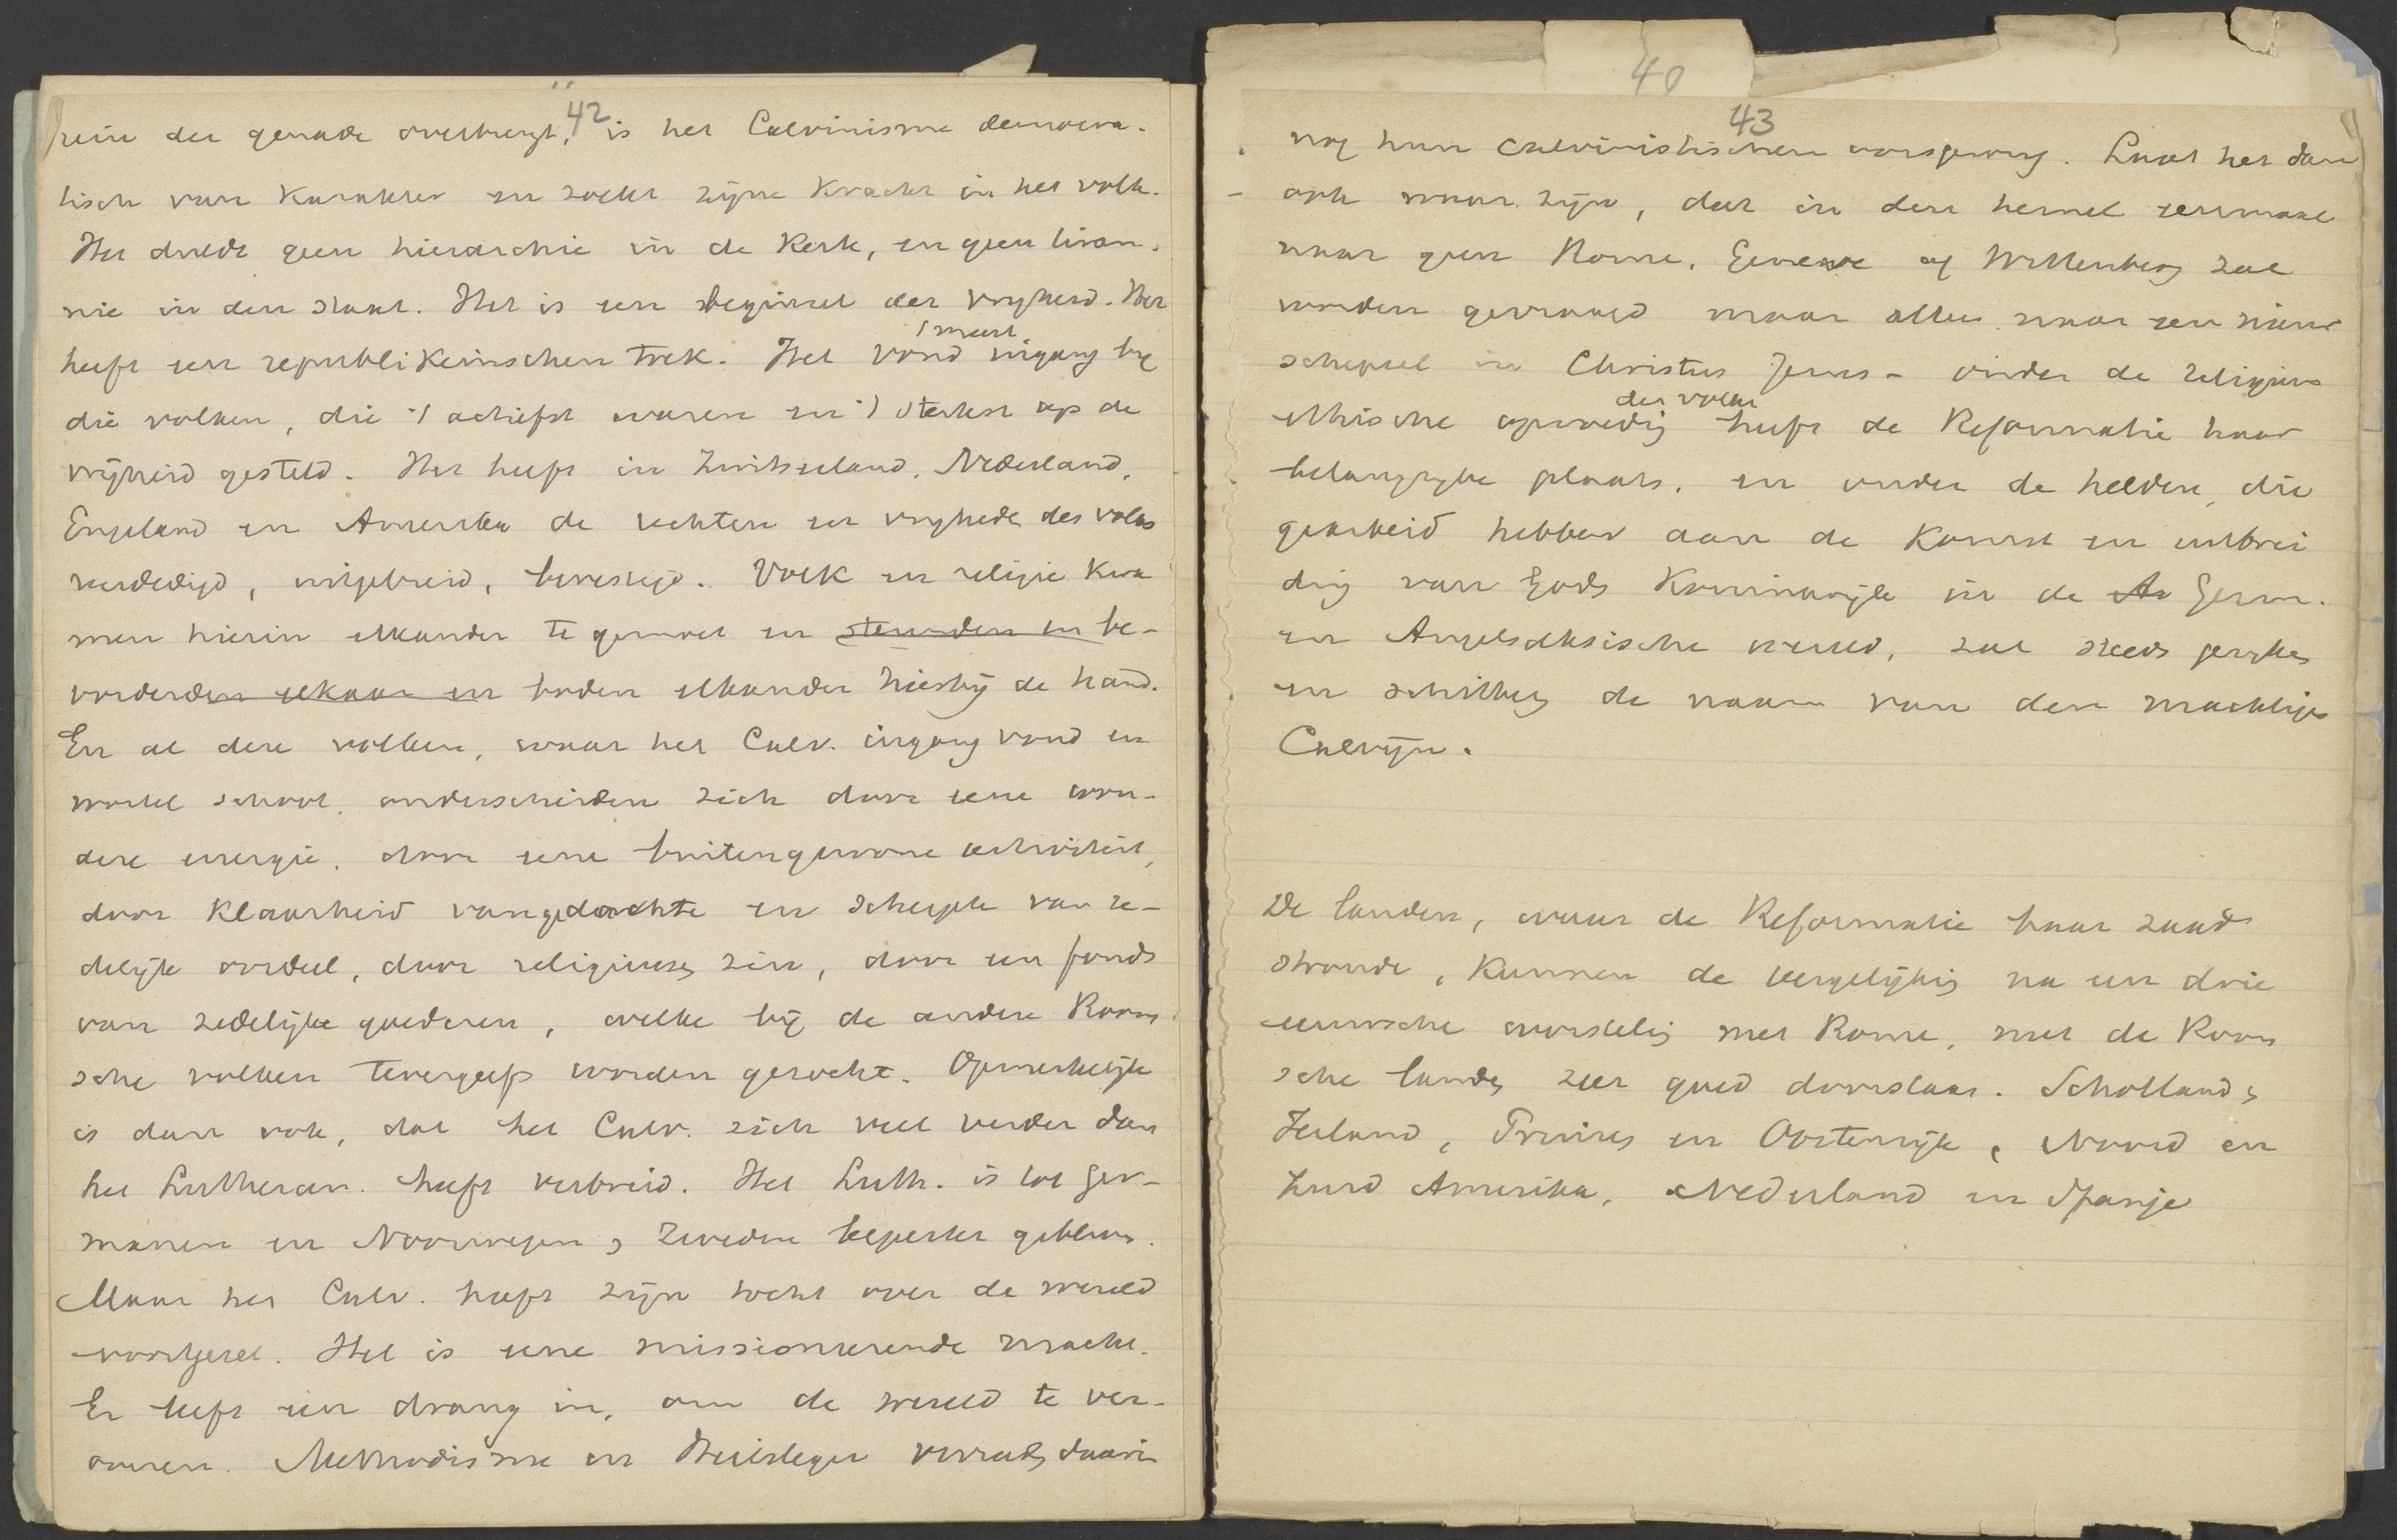 42
rein der genade overbrengt, is het Calvinisme democra-
tisch van karakter en zoekt zijne kracht in het volk.
Het duldt geen hierarchie in de kerk, en geen tiran-
nie in den staat. Het is een beginsel der vryheid. Het
heeft een republikeinschen trek. Het vond meest ingang by
die volken, die 't actiefst waren en 't sterkst op de
vrijheid gesteld. Het heeft in Zwitserland, Nederland,
Engeland en Amerika de rechten en vryheden des volks
verdedigd, uitgebreid, bevestigd. Volk en religie kwa
men hierin elkander te gemoet en steunden en be-
vorderden elkaar en boden elkander hierbij de hand.
En al deze volken, waar het Calv. ingang vond en
wortel schoot, onderscheiden zich door eene won-
dere energie, door eene buitengewone activiteit,
door klaarheid van gedachte en scherpte van ze-
delijk oordeel, door religieuzen zin, door een fonds
van zedelijke goederen, welke bij de andere Room
sche volken tevergeefs worden gezocht. Opmerkelijk
is dan ook, dat het Calv. zich veel verder dan
het Lutheran. heeft verbreid. Het Luth. is tot Ger-
manen en Noorwegen, Zweden beperkt gebleven.
Maar het Calv. heeft zijn tocht over de wereld
voortgezet. Het is eene missioneerende macht.
Er leeft een drang in, om de wereld te ver-
overen. Methodisme en Heilsleger verraden daarin
40
43
nog hun calvinistischen oorsprong. Laat het dan
ook waar zijn, dat in den hemel eenmaal
naar geen Rome, Geneve of Wittenberg zal
worden gevraagd maar alleen naar een nieuw
schepsel in Christus Jezus - onder de religieus
ethische opvoeding der volken heeft de Reformatie haar
belangryke plaats, en onder de helden, die
gearbeid hebben aan de komst en uitbrei
ding van Gods Koninkrijk in de An Germ.
en Angelsaksische wereld, zal steeds
en de naam van den machtigen
Calvijn.
De landen, waar de Reformatie haar zaad
strooide, kunnen de vergelijking na een drie
eeuwsche worsteling met Rome, met de Room
sche landen zeer goed doorstaan. Schotland,
Ierland, Pruisen en Oostenrijk, Noord en
Zuid Amerika, Nederland en Spanje